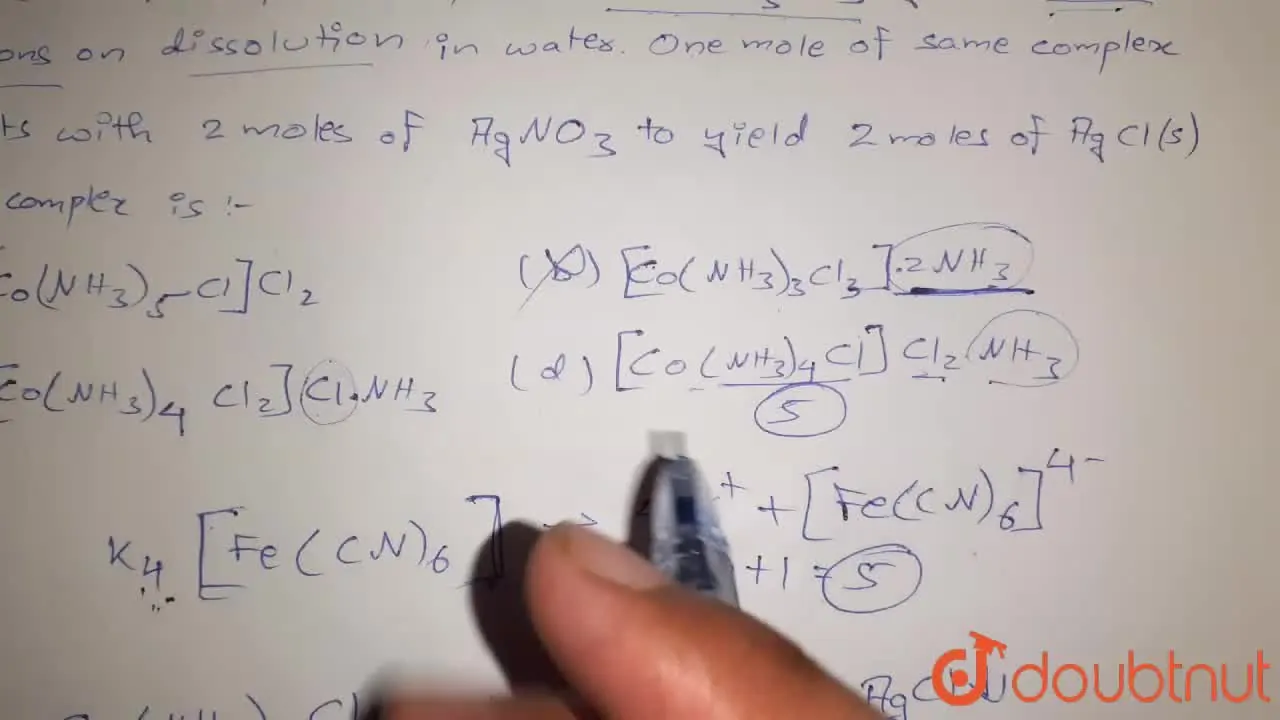 ons on dissolution in water. One mole of same complex
ts with 2 moles of AgNO3 to yield 2 moles of AgCl(s)
complex is :-
Co(NH3)5-Cl]Cl2
(b) [Co(NH3)3Cl3].2NH3
Co(NH3)4 Cl2]Cl.NH3
(d) [Co(NH3)4Cl] Cl2 NH3
5
K4 [Fe(CN)6] → + + [Fe(CN)6]4-
+1 = 5
doubtnut